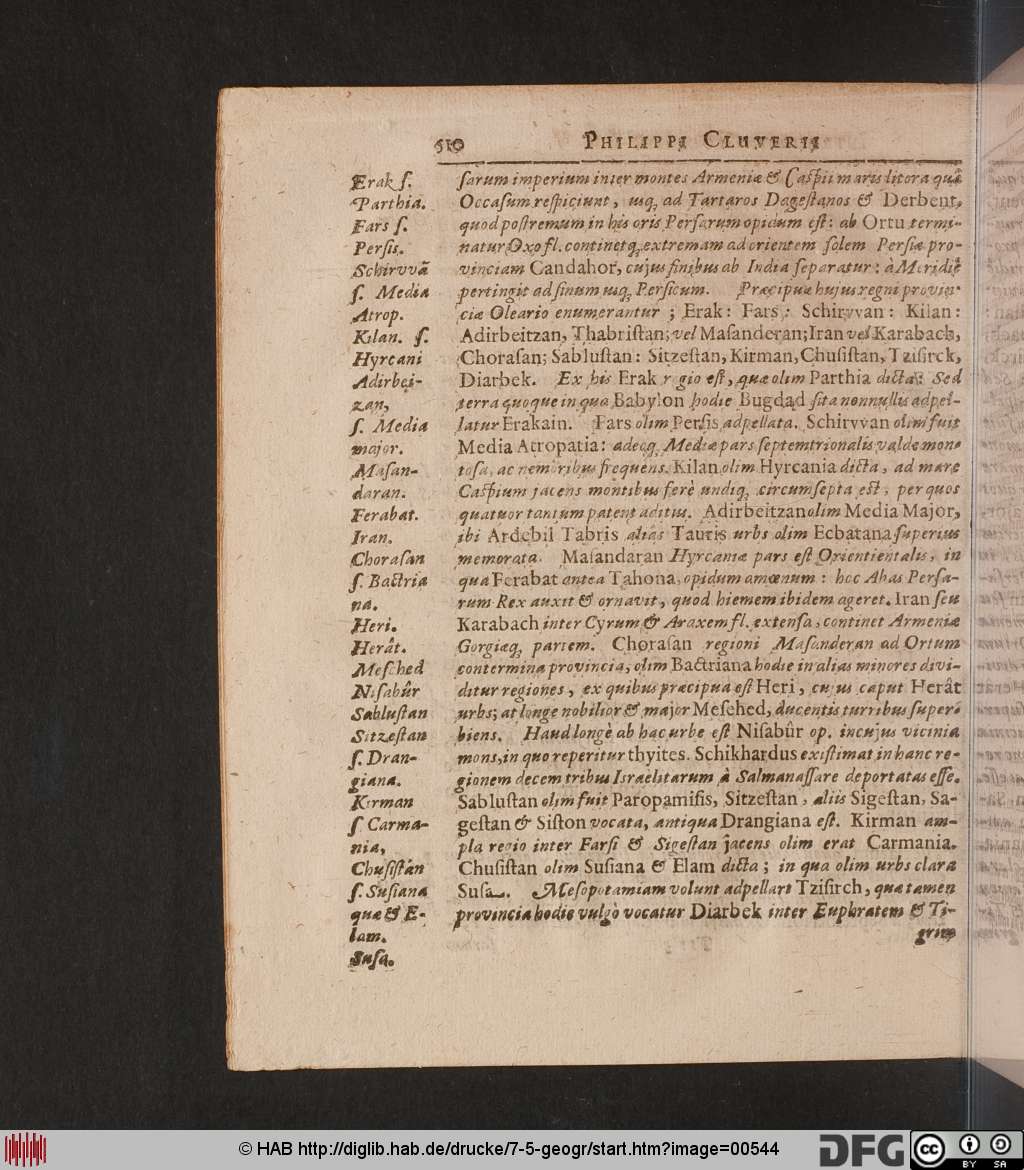 510 PHILIPPI CLUVERII
Erak ſ.
Parthia.
Fars ſ.
Perſis.
Schirvvã
ſ. Media
Atrop.
Kilan. ſ.
Hyrcani
Adirbei-
zan,
ſ. Media
major.
Maſan-
daran.
Ferabat.
Iran.
Choraſan
ſ. Bactria
na.
Heri.
Herât.
Meſched
Niſabûr
Sabluſtan
Sitzeſtan
ſ. Dran-
giana.
Kirman
ſ Carma-
nia,
Chuſiſtán
ſ. Suſiana
quæ & E-
lam.
Suſa.
ſarum imperium inter montes Armeniæ & Caſpii maris litora quâ
Occaſum reſpiciunt, uſq, ad Tartaros Dageſtanos & Derbent,
quod poſtremum in his oris Perſarum opidum eſt: ab Ortu termi-
natur Oxo fl. continetq, extremam ad orientem ſolem Perſiæ pro-
vinciam Candahor, cujus finibus ab India ſeparatur: à Meridiê
pertingit ad ſinum uſq, Perſicum. Præcipuæ hujus regni provin-
ciæ Oleario enumerantur ; Erak: Fars: Schirvvan: Kilan:
Adirbeitzan, Thabriſtan; vel Maſanderan; Iran vel Karabach,
Choraſan; Sabluſtan: Sitzeſtan, Kirman, Chuſiſtan, Tziſirck,
Diarbek. Ex his Erak regio eſt, quæ olim Parthia dicta: Sed
terra quoque in qua Babylon hodie Bugdad ſita nonnullis adpel-
latur Erakain. Fars olim Perſis adpellata. Schirvvan olim fuit
Media Atropatia: adeoq, Mediæ pars ſeptemtrionalis valde mon-
toſa, ac nemoribus frequens. Kilan olim Hyrcania dicta, ad mare
Caſpium jacens montibus ferè undiq, circumſepta eſt, per quos
quatuor tantum patent aditus. Adirbeitzan olim Media Major,
ibi Ardebil Tabris alias Tauris urbs olim Ecbatana ſuperius
memorata. Maſandaran Hyrcaniæ pars eſt Orientientalis, in
qua Ferabat antea Tahona, opidum amœnum: hoc Abas Perſa-
rum Rex auxit & ornavit, quod hiemem ibidem ageret. Iran ſeu
Karabach inter Cyrum & Araxem fl. extenſa, continet Armeniæ
Gorgiæq, partem. Choraſan regioni Maſanderan ad Ortum
contermina provincia, olim Bactriana hodie in alias minores divi-
ditur regiones, ex quibus præcipua eſt Heri, cujus caput Herât
urbs; at longe nobilior & major Meſehed, ducentis turribus ſuper-
biens. Haud longè ab hac urbe eſt Niſabûr op. in cujus vicinia
mons, in quo reperitur thyites. Schikhardus exiſtimat in hanc re-
gionem decem tribus Israëlitarum à Salmanaſſare deportatas eſſe.
Sabluſtan olim fuit Paropamiſis, Sitzeſtan, aliis Sigeſtan, Sa-
geſtan & Siſton vocata, antiqua Drangiana eſt. Kirman am-
pla regio inter Farſi & Sigeſtan jacens olim erat Carmania.
Chuſiſtan olim Suſiana & Elam dicta ; in qua olim urbs clara
Suſa. Meſopotamiam volunt adpellari Tziſirch, quæ tamen
provincia hodie vulgò vocatur Diarbek inter Euphratem & Ti-
grim
© HAB http://diglib.hab.de/drucke/7-5-geogr/start.htm?image=00544
DFG
cc
BY SA